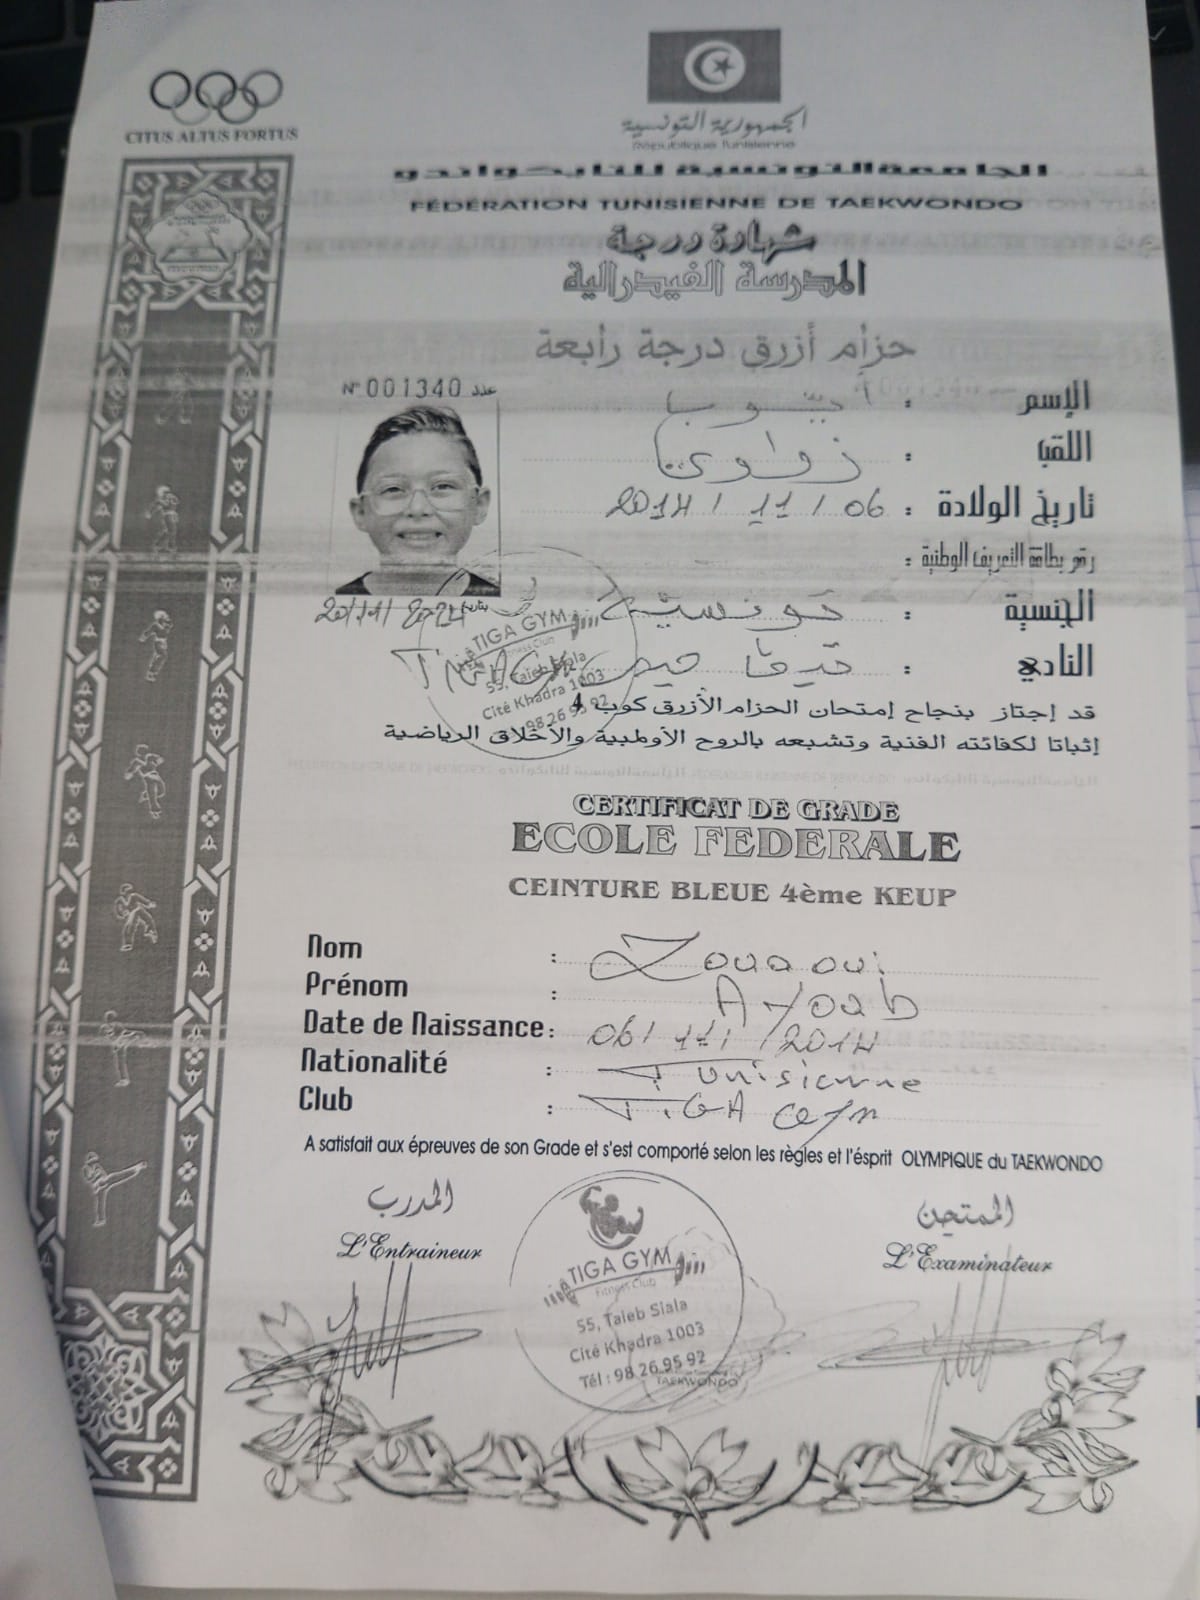 CITUS ALTUS FORTUS
الجمهورية التونسية
République Tunisienne
الجامعة التونسية للتايكواندو
FÉDÉRATION TUNISIENNE DE TAEKWONDO
شهادة درجة
المدرسة الفيدرالية
حزام أزرق درجة رابعة
N° 001340 عدد
الإسم : أيوب
اللقب : زواوي
تاريخ الولادة : 06 / 11 / 2014
رقم بطاقة التعريف الوطنية :
الجنسية : تونسية
النادي : تيقا جيم
TIGA GYM
Fitness Club
55, Taieb Slala
Cité Khadra 1003
98 26 95 92
قد إجتاز بنجاح إمتحان الحزام الأزرق كوب 4
إثباتا لكفائته الفنية وتشبعه بالروح الأولمبية والأخلاق الرياضية
CERTIFICAT DE GRADE
ECOLE FEDERALE
CEINTURE BLEUE 4ème KEUP
Nom : Zouaoui
Prénom : Ayoub
Date de Naissance : 06 / 11 / 2014
Nationalité : Tunisienne
Club : TIGA Gym
A satisfait aux épreuves de son Grade et s'est comporté selon les règles et l'ésprit OLYMPIQUE du TAEKWONDO
المدرب
L'Entraineur
الممتحن
L'Examinateur
TIGA GYM
Fitness Club
55, Taieb Slala
Cité Khadra 1003
Tél : 98 26 95 92
TAEKWONDO